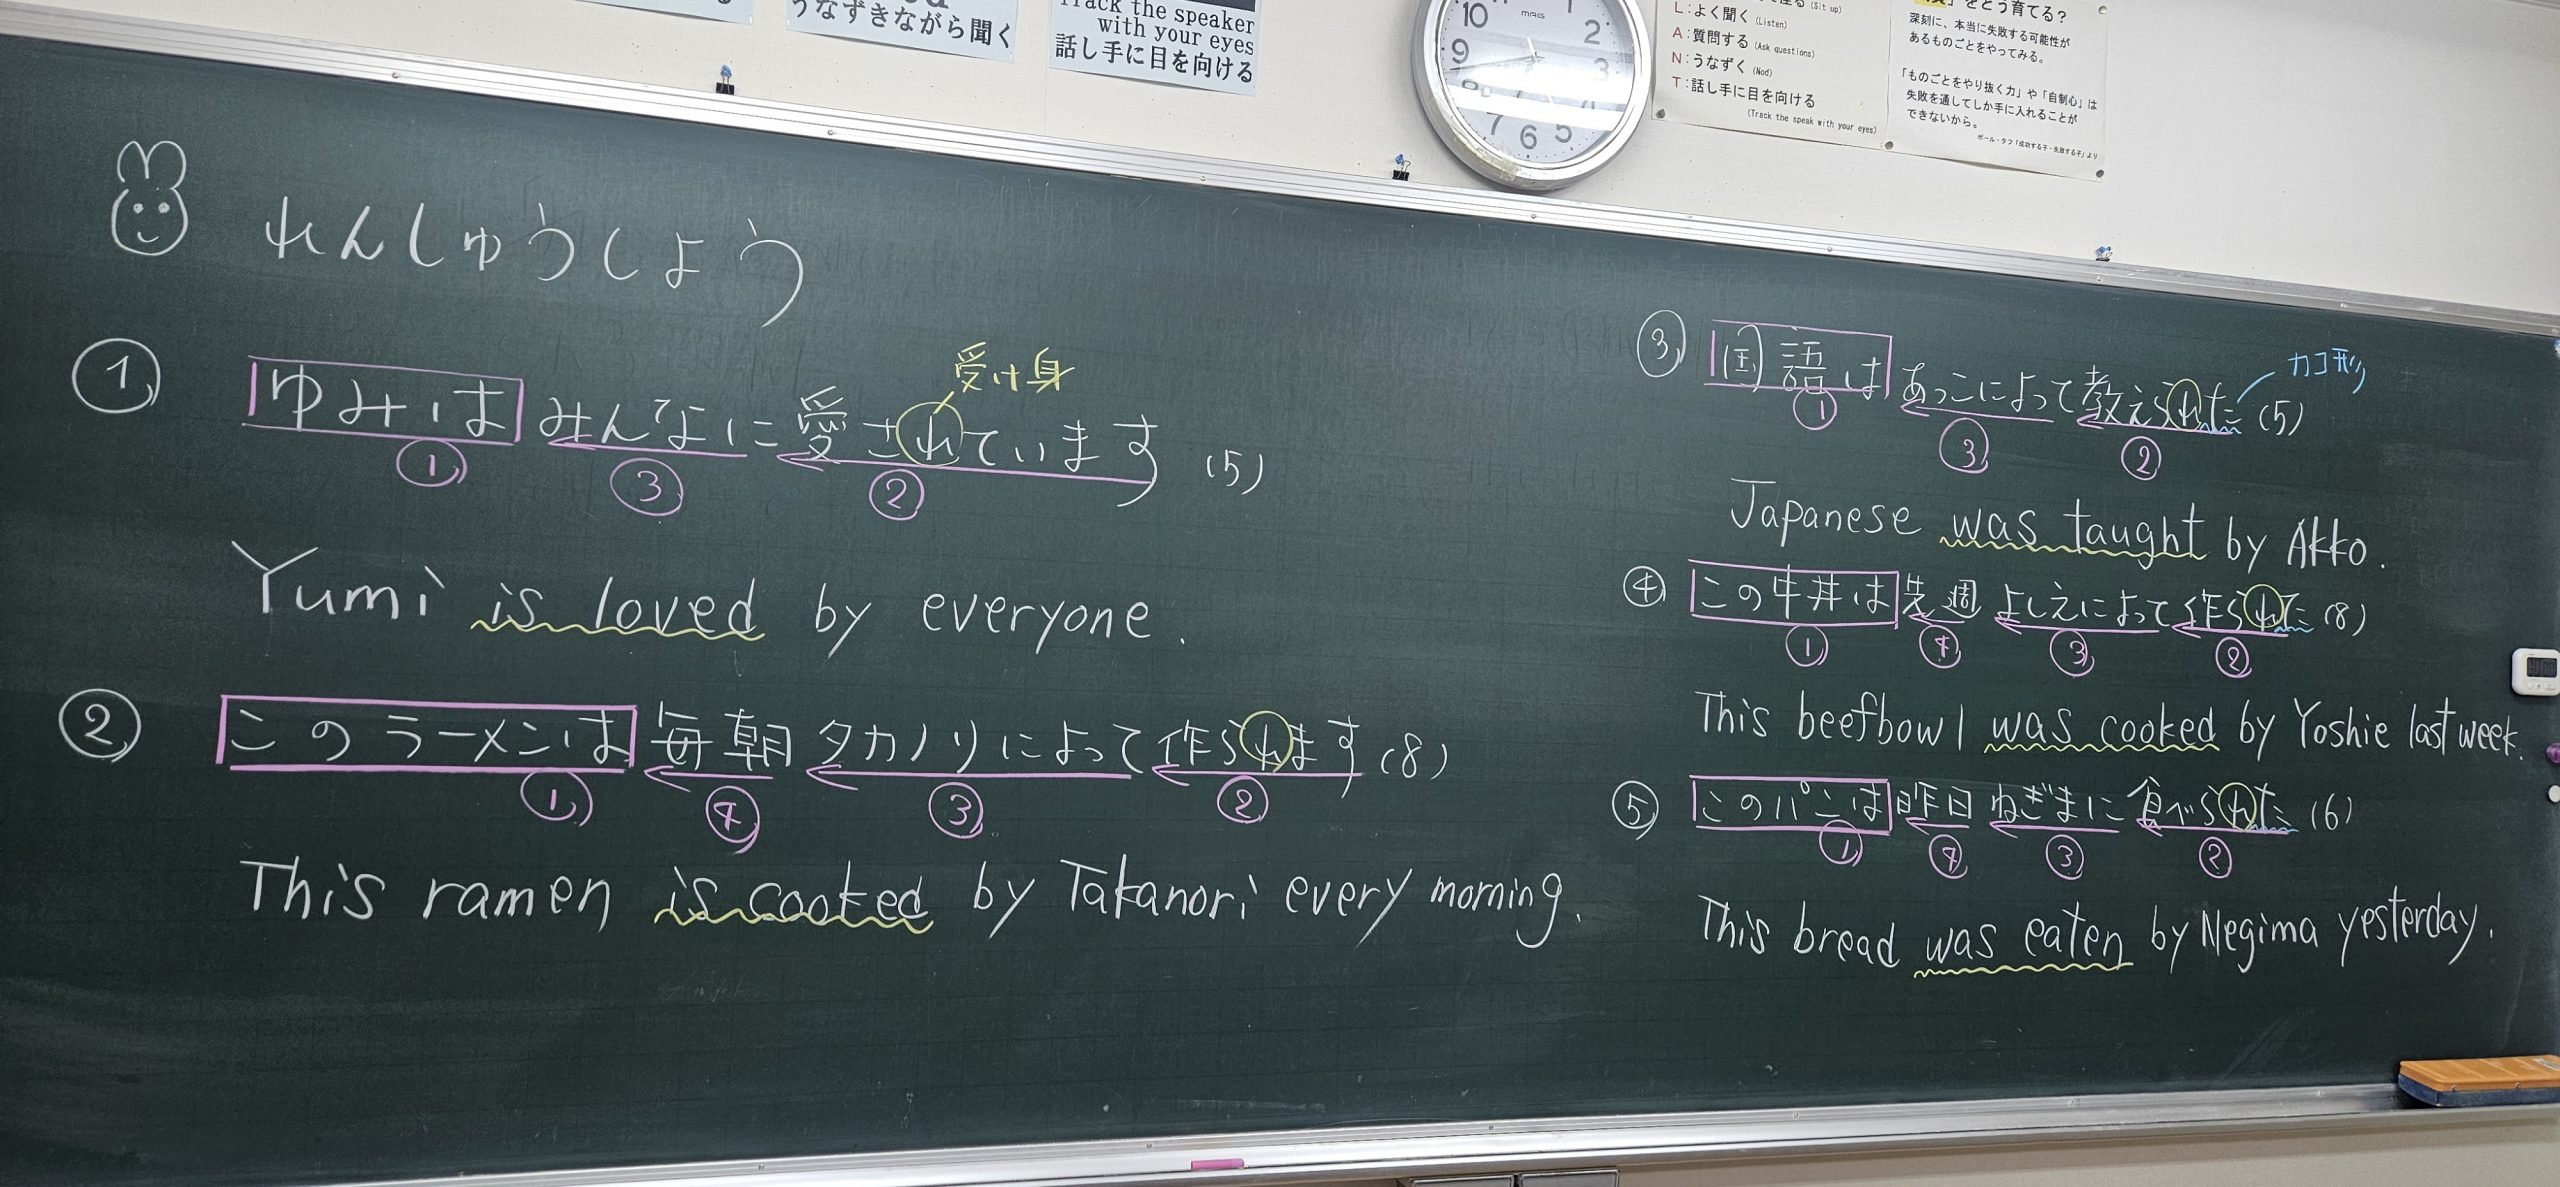 うなずきながら聞く
Track the speaker
with your eyes
話し手に目を向ける
10
1
2
9
3
8
7
6
5
MAG
(Sit up)
L:よく聞く (Listen)
A:質問する (Ask questions)
N:うなずく (Nod)
T:話し手に目を向ける
(Track the speak with your eyes)
をどう育てる?
深刻に、本当に失敗する可能性が
あるものごとをやってみる。
「ものごとをやり抜く力」や「自制心」は
失敗を通してしか手に入れることが
できないから。
ポール・タフ「成功する子・失敗する子」より
れんしゅうしよう
受け身
① ゆみは みんなに 愛されています (5)
① ③ ②
Yumi is loved by everyone.
② このラーメンは 毎朝 タカノリによって 作られます (8)
① ④ ③ ②
This ramen is cooked by Takanori every morning.
カコ形
③ 国語は あっこによって 教えられた (5)
① ③ ②
Japanese was taught by Akko.
④ この牛丼は 先週 よしえによって 作られた (8)
① ④ ③ ②
This beefbowl was cooked by Yoshie last week.
⑤ このパンは 昨日 ねぎまに 食べられた (6)
① ④ ③ ②
This bread was eaten by Negima yesterday.